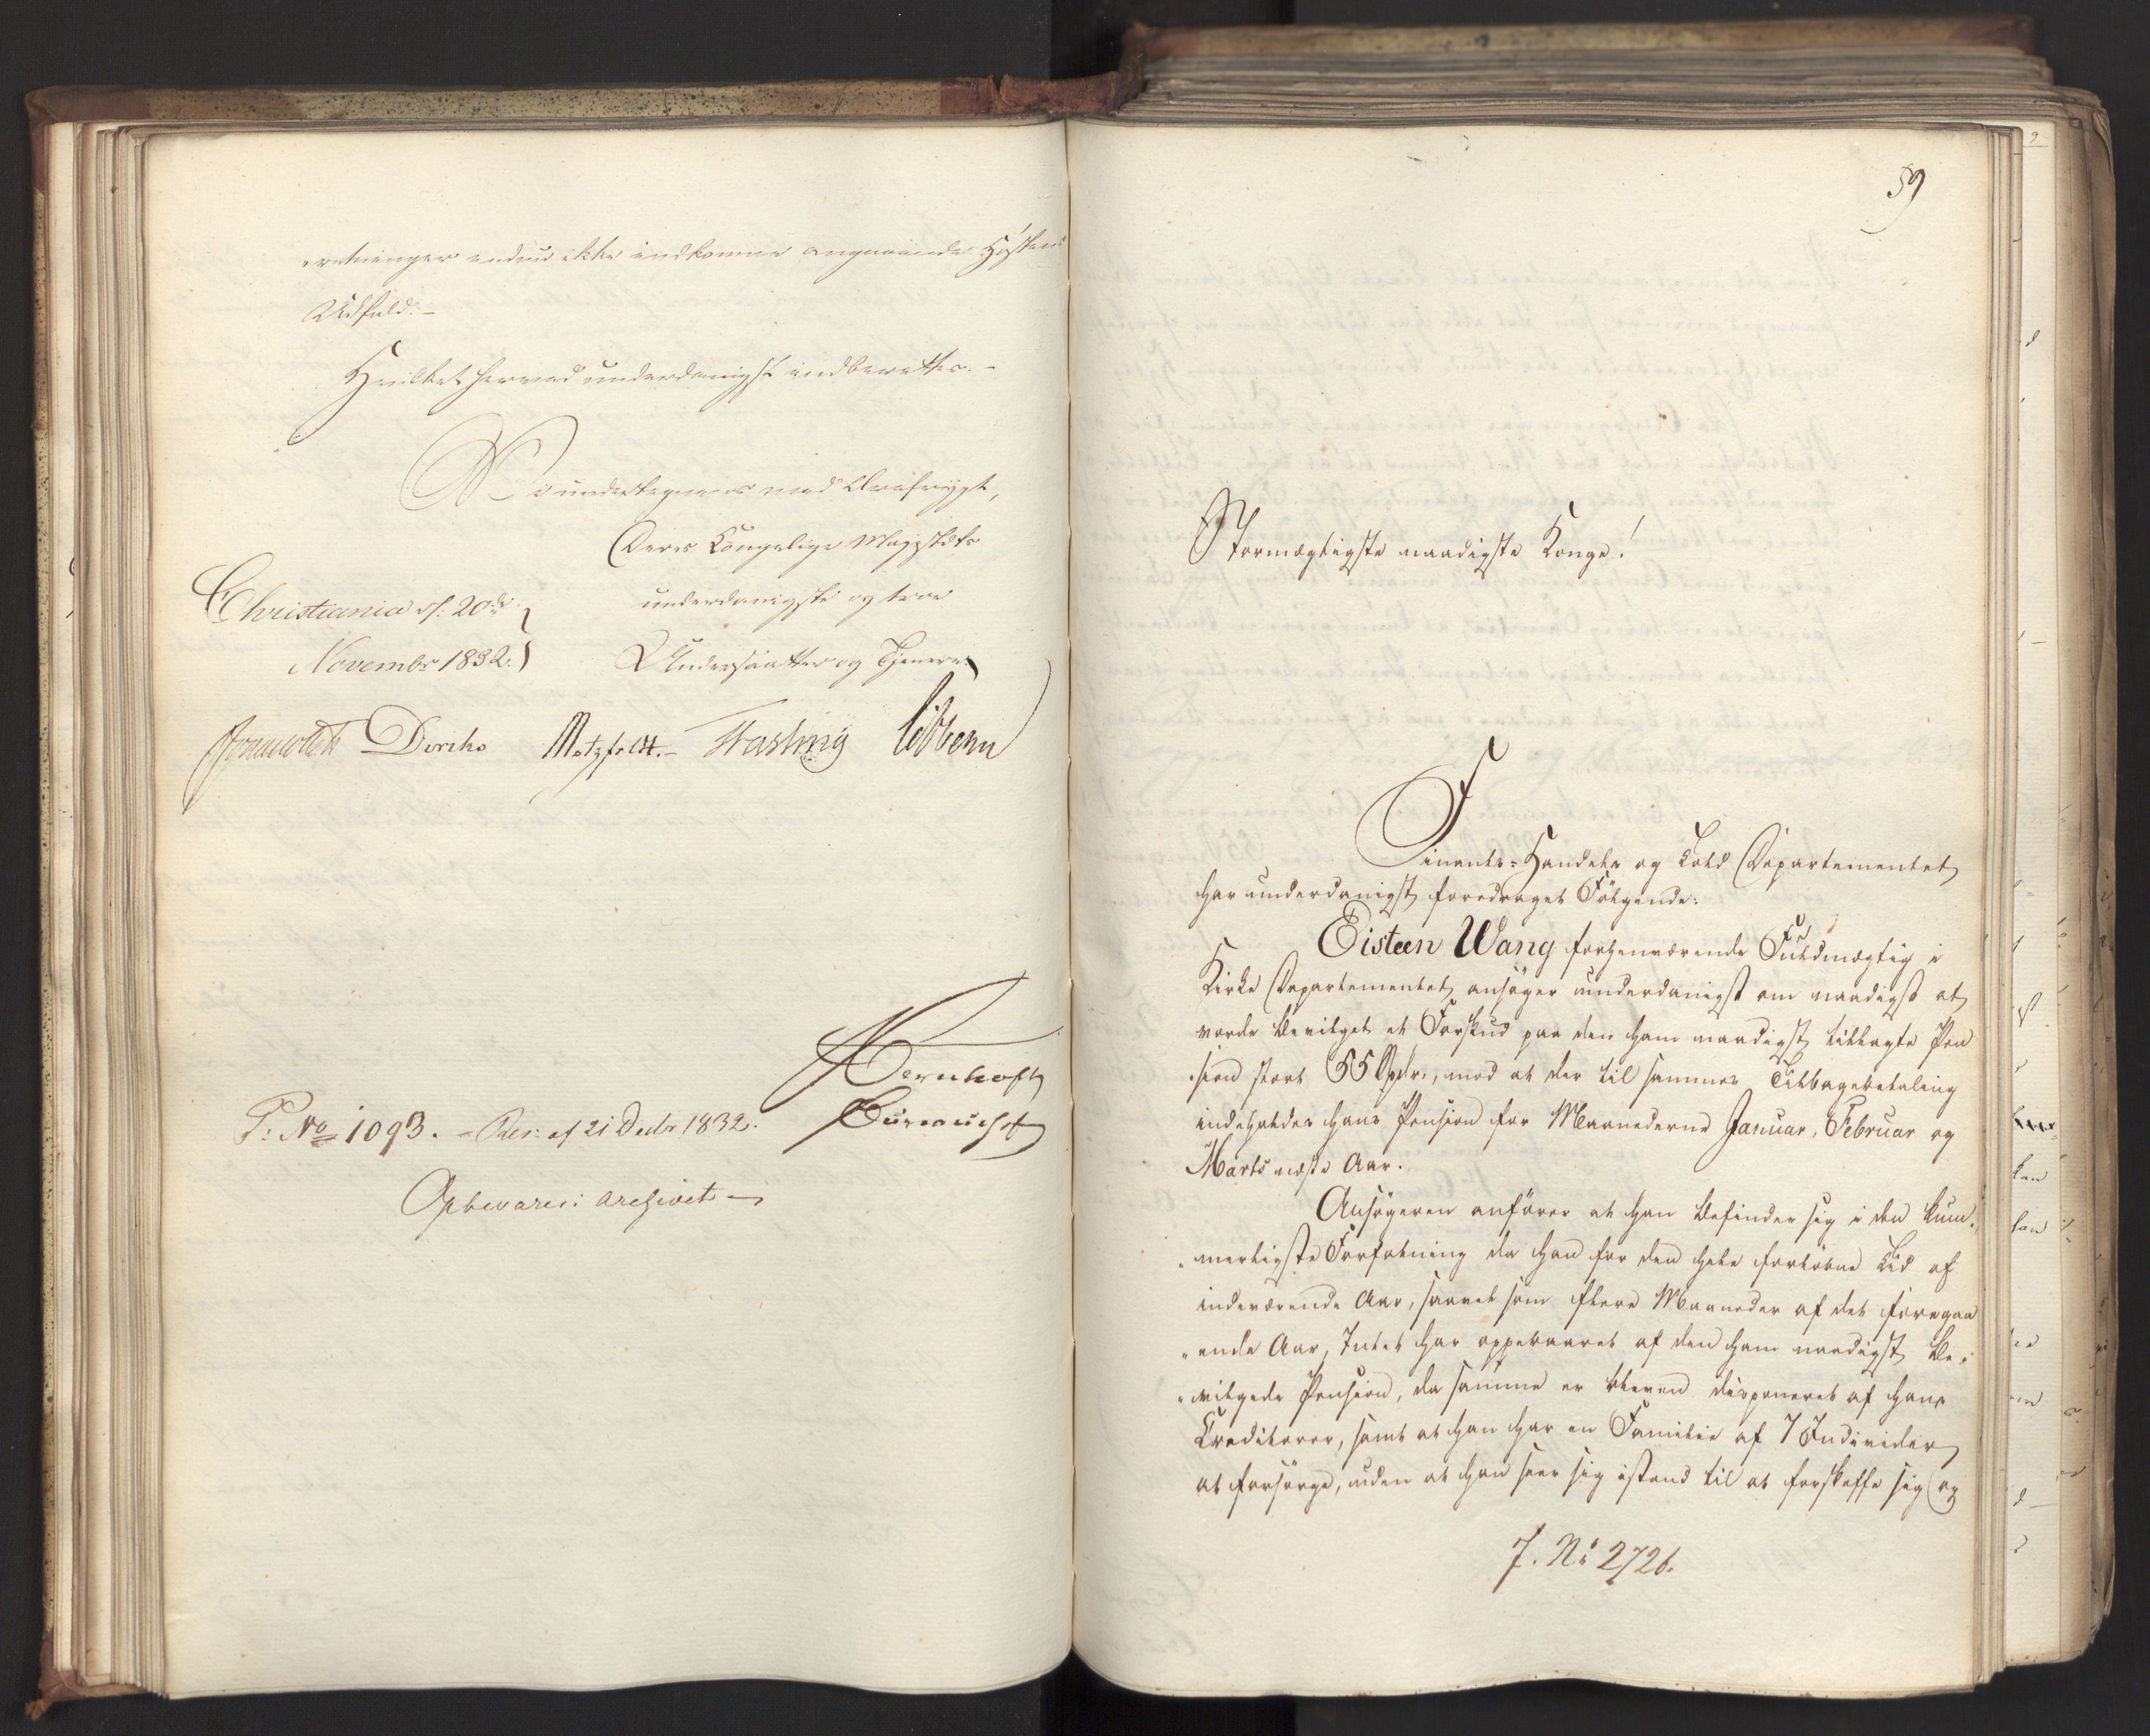 „retninger endnu ikke indkomne angaaende Høstens
Udfald. –
Hvilket herved underdanigst indberettes. –
Vi undertegne os med Ærefrygt,
Deres Kongelige Majestæts
Christiania d: 20de
underdanigste og troe
Novembr 1832.
Undersaatter og Tjenere
Motzfeldt. – Fasting Sibbern
P: No 1093. – Res: af 21 Decbr 1832.
Opbevares i Archivet –
59
Stormægtigste naadigste Konge!
Finants- Handels og Told Departementet
har underdanigst foredraget Følgende:
Eisteen Wang forhenværende Fuldmægtig i
Kirke Departementet ansøger underdanigst om naadigst at
vorde bevilget et Forskud paa den ham naadigst tillagte Pen
„sion stort 55 Spdlr., mod at der til sammes Tilbagebetaling
indeholdes hans Pension for Maanederne Januar, Februar og
Marts næste Aar.
Ansøgeren anfører at han befinder sig i den kum„
„merligste Forfatning da han for den hele forløbne Tid af
indeværende Aar, saavel som flere Maaneder af det foregaa
„ende Aar, Intet har oppebaaret af den ham naadigst be„
„vilgede Pension, da samme er bleven disponeret af hans
Creditorer, samt at han har en Familie af 7 Individer
at forsørge, uden at han seer sig istand til at forskaffe sig og
J. No 2726.